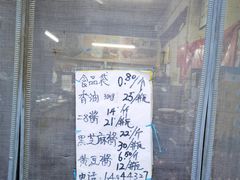 食品袋 0.80/个
香油 25/瓶
二八酱 14/斤
21/瓶
黑芝麻酱 22/斤
30/瓶
黄豆酱 6.50/斤
12/瓶
电话